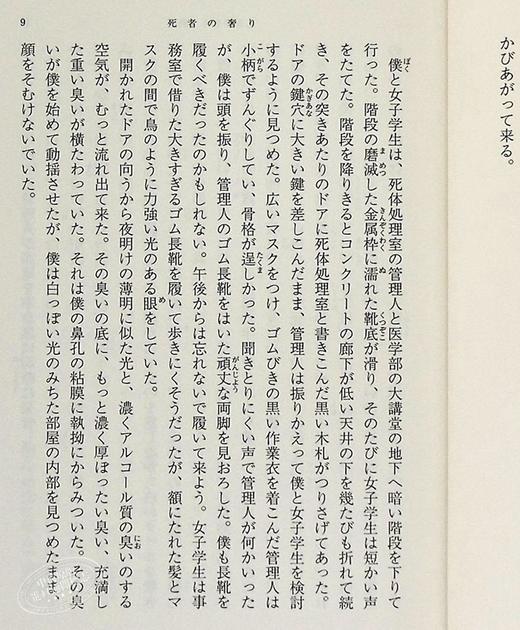 かびあがって来る。
死者の奢り
9
僕と女子学生は、死体処理室の管理人と医学部の大講堂の地下へ暗い階段を下りて
行った。階段の磨滅した金属枠に濡れた靴底が滑り、そのたびに女子学生は短かい声
をたてた。階段を降りきるとコンクリートの廊下が低い天井の下を幾たびも折れて続
き、その突きあたりのドアに死体処理室と書きこんだ黒い木札がつりさげてあった。
ドアの鍵穴に大きい鍵を差しこんだまま、管理人は振りかえって僕と女子学生を検討
するように見つめた。広いマスクをつけ、ゴムびきの黒い作業衣を着こんだ管理人は
小柄でずんぐりしてい、骨格が逞しかった。聞きとりにくい声で管理人が何かいった
が、僕は頭を振り、管理人のゴム長靴をはいた頑丈な両脚を見おろした。僕も長靴を
履くべきだったのかもしれない。午後からは忘れないで履いて来よう。女子学生は事
務室で借りた大きすぎるゴム長靴を履いて歩きにくそうだったが、額にたれた髪とマ
スクの間で鳥のように力強い光のある眼をしていた。
開かれたドアの向うから夜明けの薄明に似た光と、濃くアルコール質の臭いのする
空気が、むっと流れ出て来た。その臭いの底に、もっと濃く厚ぼったい臭い、充満し
た重い臭いが横たわっていた。それは僕の鼻孔の粘膜に執拗にからみついた。その臭
いが僕を始めて動揺させたが、僕は白っぽい光のみちた部屋の内部を見つめたまま、
顔をそむけないでいた。